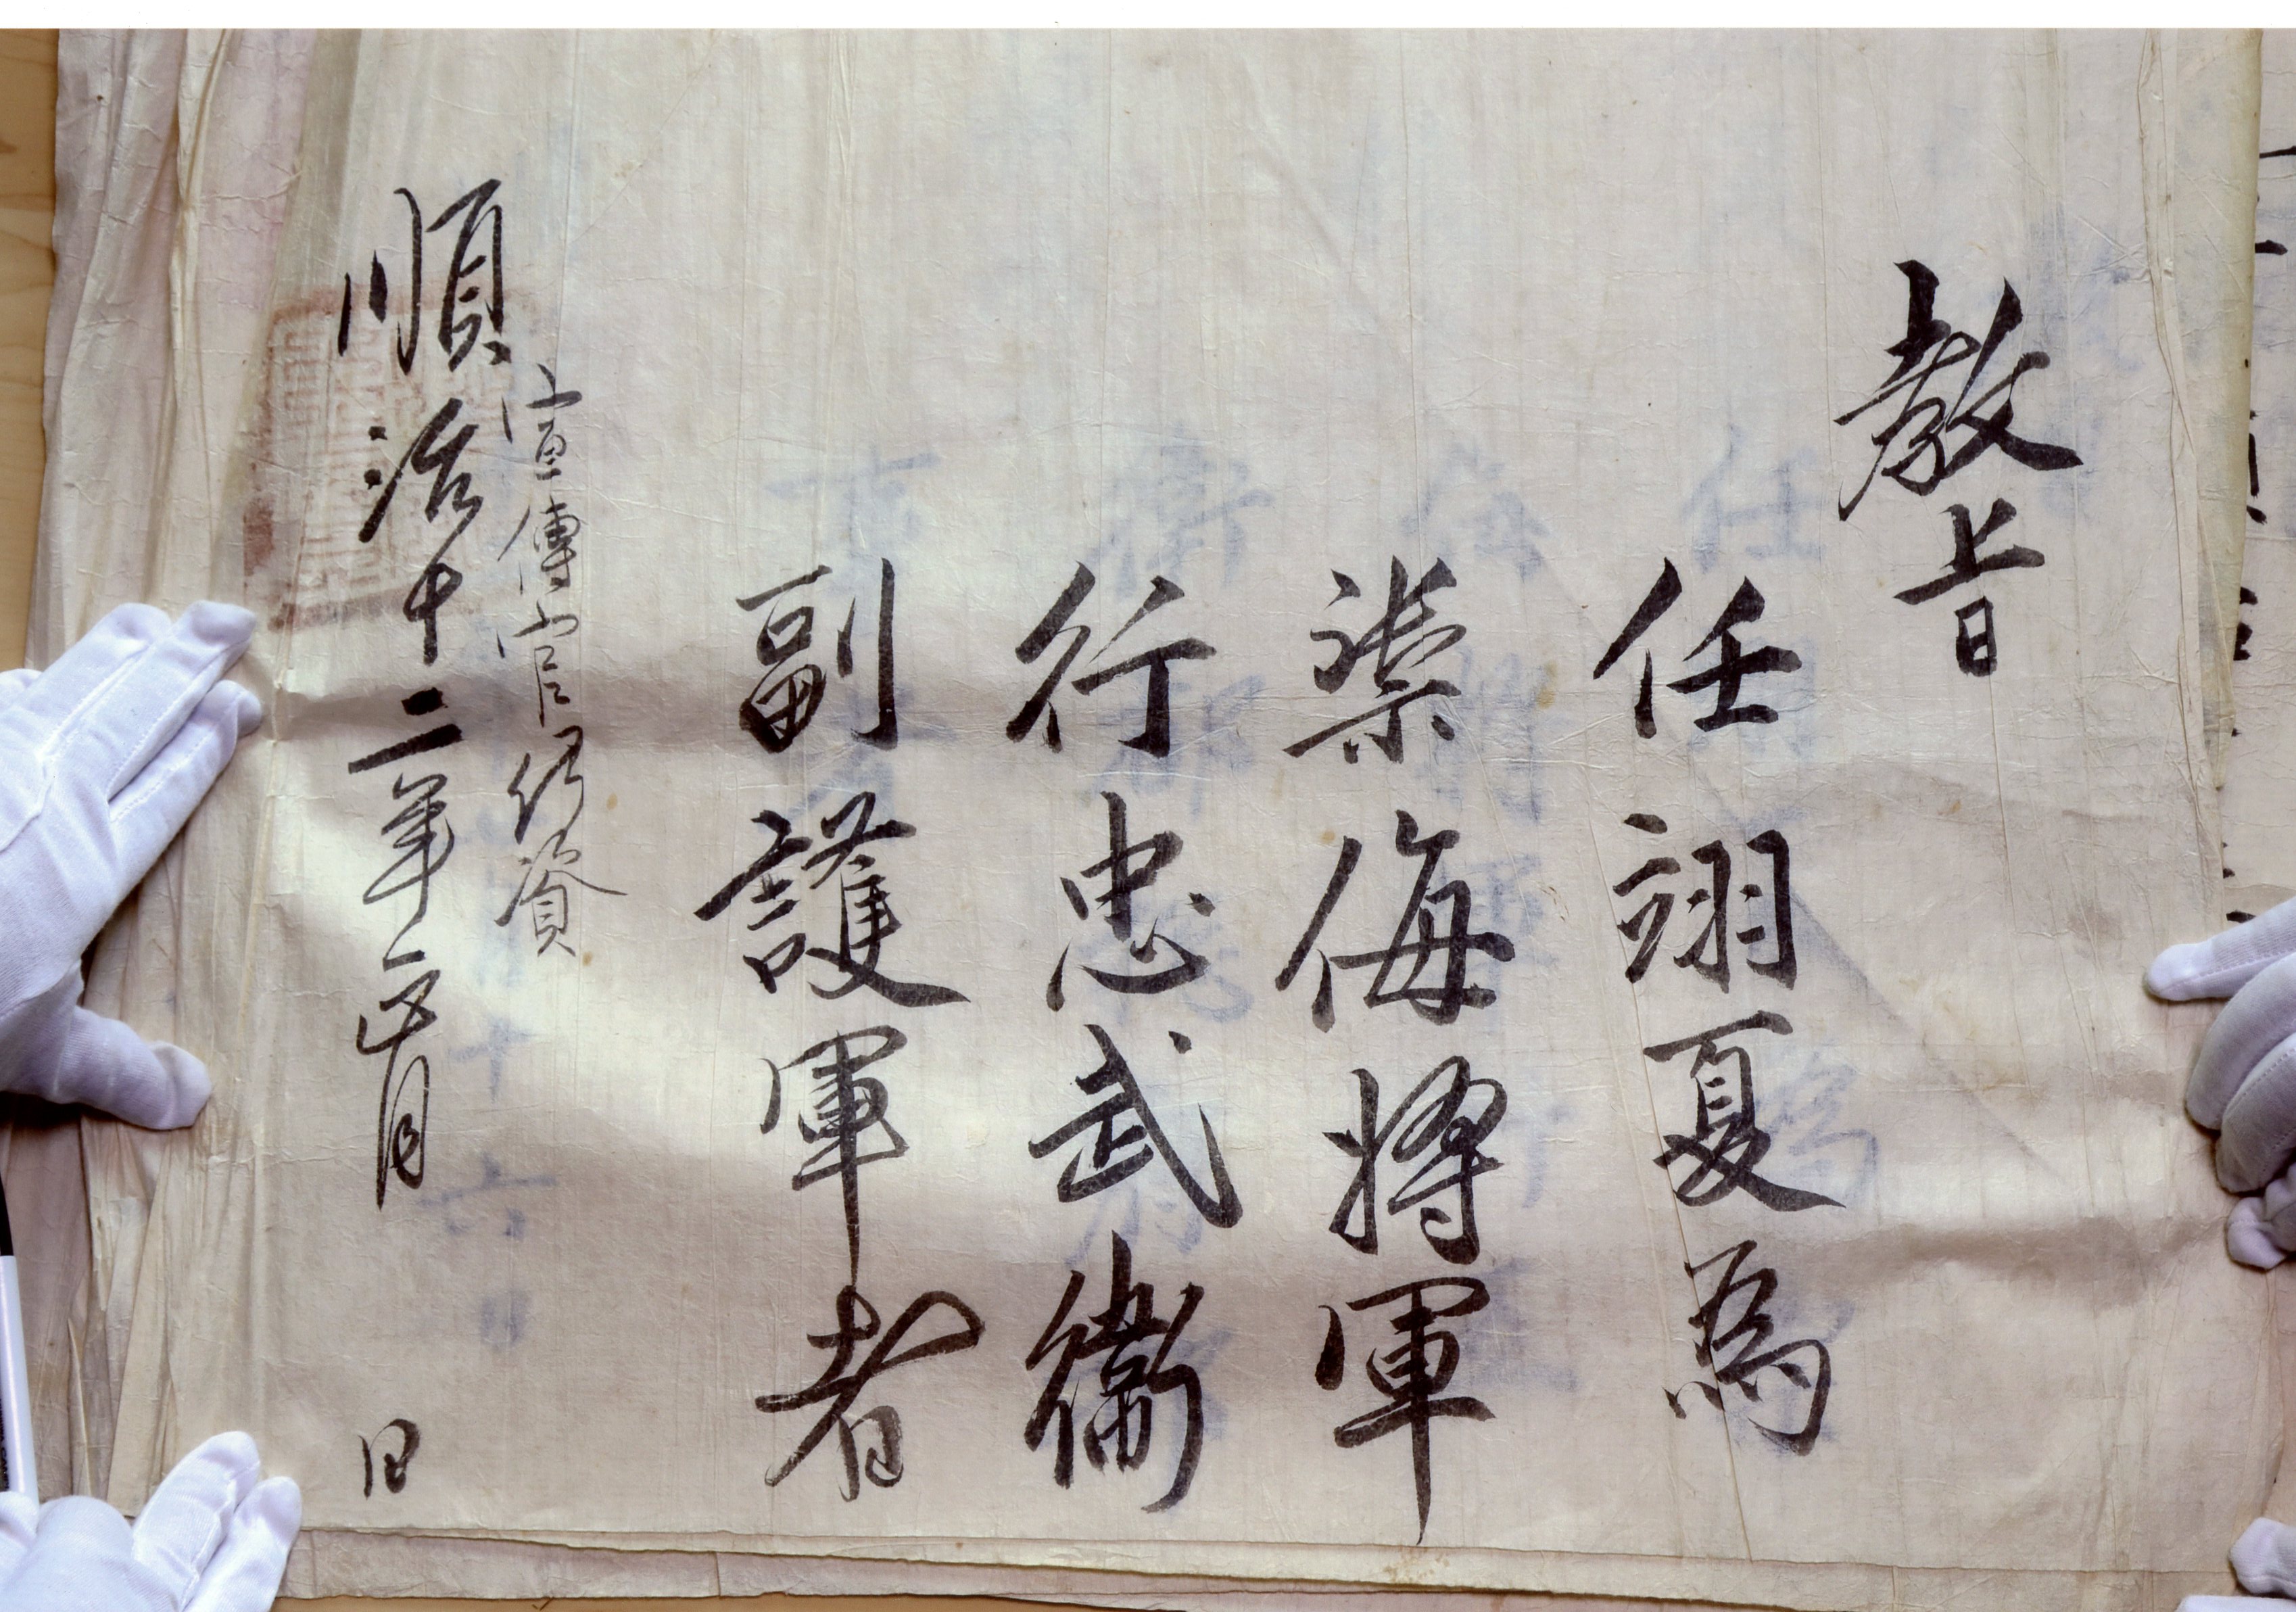 教旨
任翊夏爲
禦侮將軍
行忠武衛
副護軍者
宣傳官仍資
順治十二年正月 日